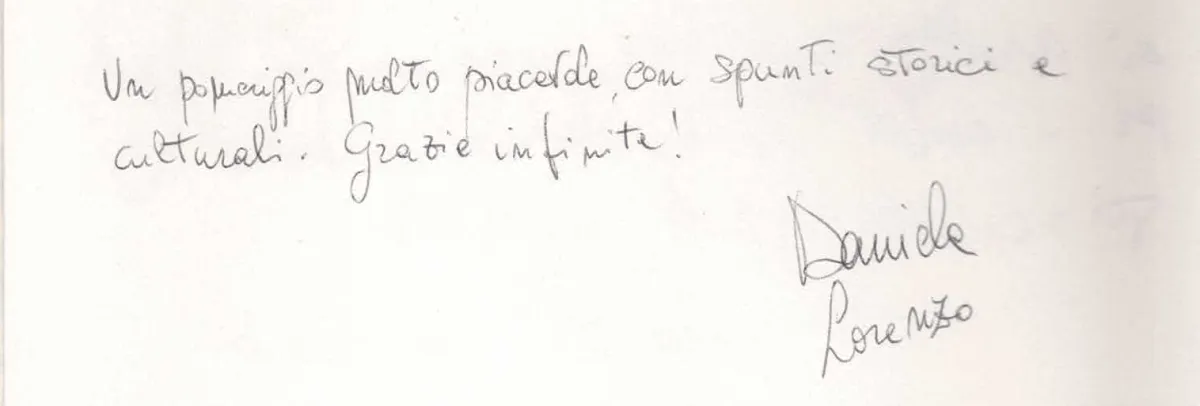 Un pomeriggio molto piacevole, con spunti storici e
culturali. Grazie infinite!
Daniela
Lorenzo